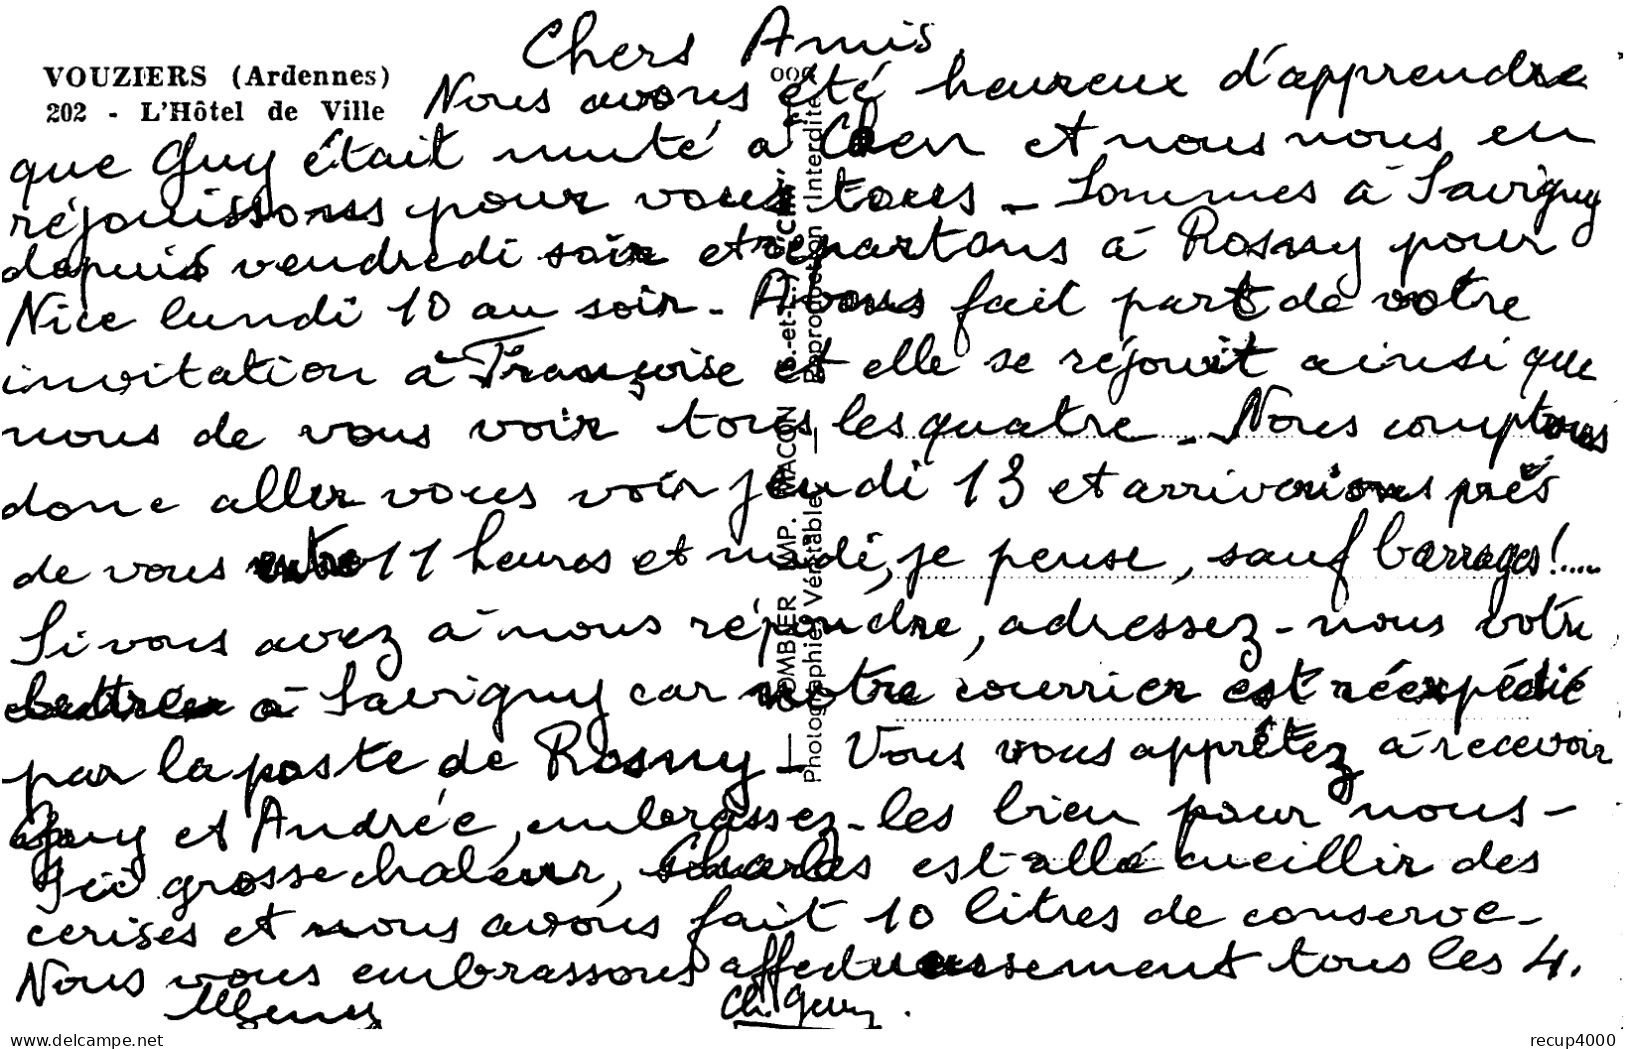 Chers Amis,
VOUZIERS (Ardennes)
202 - L'Hôtel de Ville
Nous avons été heureux d'apprendre
que Guy était muté à Caen et nous nous en
réjouissons pour vous tous - Sommes à Savigny
depuis vendredi soir et repartons à Rosny pour
Nice lundi 10 au soir - Avons fait part de votre
invitation à Françoise et elle se réjouit ainsi que
nous de vous voir tous les quatre - Nous comptons
donc aller vous voir jeudi 13 et arriverions près
de vous entre 11 heures et midi, je pense, sauf barrages!....
Si vous avez à nous répondre, adressez-nous votre
lettre à Savigny car notre courrier est réexpédié
par la poste de Rosny - Vous vous apprêtez à recevoir
Guy et Andrée, embrassez-les bien pour nous -
Ici grosse chaleur, Charles est allé cueillir des
cerises et nous avons fait 10 litres de conserve -
Nous vous embrassons affectueusement tous les 4.
Ch.
COMBIER IMP. MACON (S.-et-L.) "CIM"
Photographie Véritable - Reproduction Interdite
www.delcampe.net
recup4000